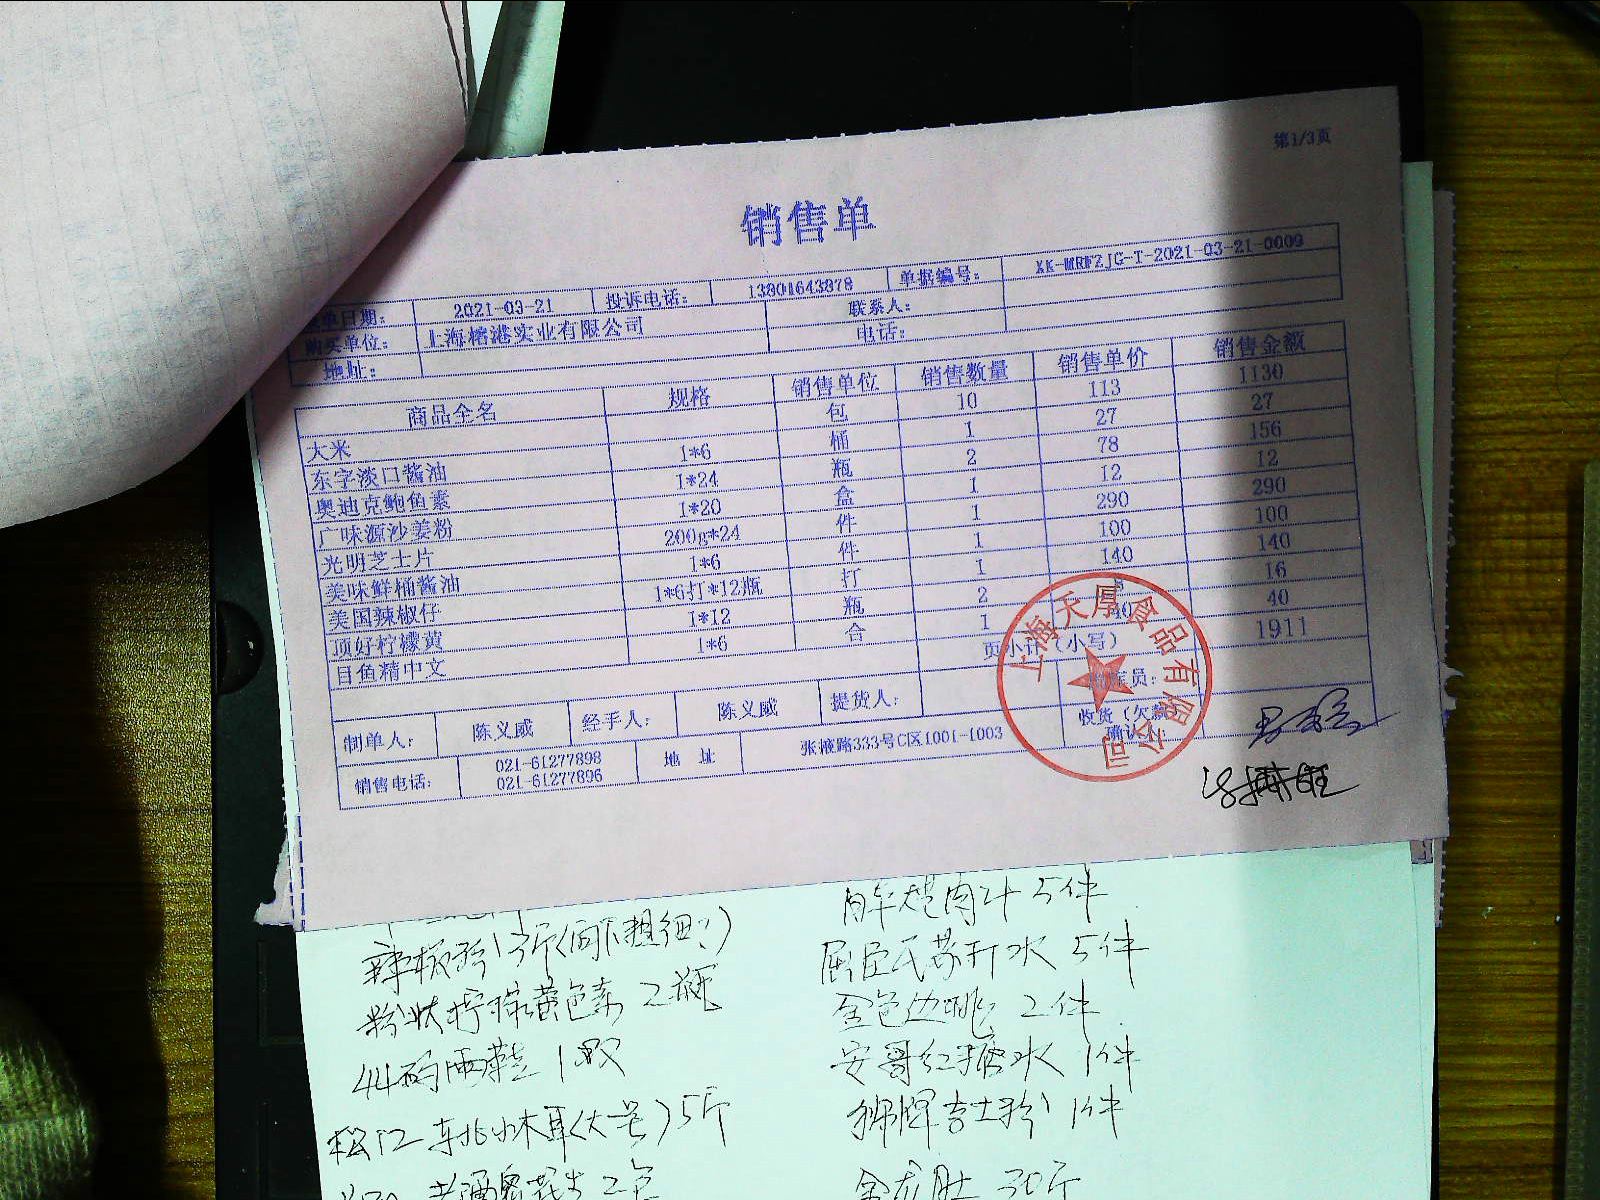 第1/3页
销售单
单日期： 2021-03-21 投诉电话： 13801643878 单据编号： XK-MRFZJG-T-2021-03-21-0009
购买单位： 上海榕港实业有限公司 联系人：
地址： 电话：
商品全名 规格 销售单位 销售数量 销售单价 销售金额
大米 包 10 113 1130
东字淡口酱油 1*6 桶 1 27 27
奥迪克鲍鱼素 1*24 瓶 2 78 156
广味源沙姜粉 1*20 盒 1 12 12
光明芝士片 200g*24 件 1 290 290
美味鲜桶酱油 1*6 件 1 100 100
美国辣椒仔 1*6打*12瓶 打 1 140 140
顶好柠檬黄 1*12 瓶 2 8 16
目鱼精中文 1*6 合 1 40 40
页小计（小写） 1911
制单人： 陈义威 经手人： 陈义威 提货人： 员：
销售电话： 021-61277898 021-61277896 地址 张掖路333号C区1001-1003 收货（欠款 确认
上海天厚食品有限公司
5件
辣椒粉13斤(问下粗细?) 屈臣氏苏打水 5件
粉状柠檬黄色素 2瓶 金色边 2件
44码雨鞋 1双 安哥红糖水 1件
松江 东北小木耳(大号)5斤 狮牌吉士粉 1件
2包 金龙肚 30斤